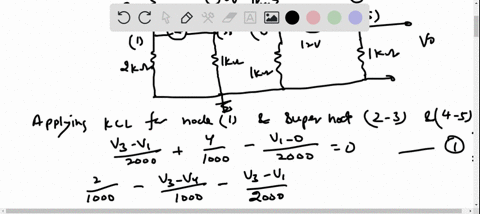 (1)
2kΩ
1kΩ
1kΩ
12V
1kΩ
V0
Applying KCL for node (1) & Super node (2-3) &(4-5)
V3-V1/2000 + 4/1000 - V1-0/2000 = 0 — ①
2/1000 - V3-V4/1000 - V3-V1/2000